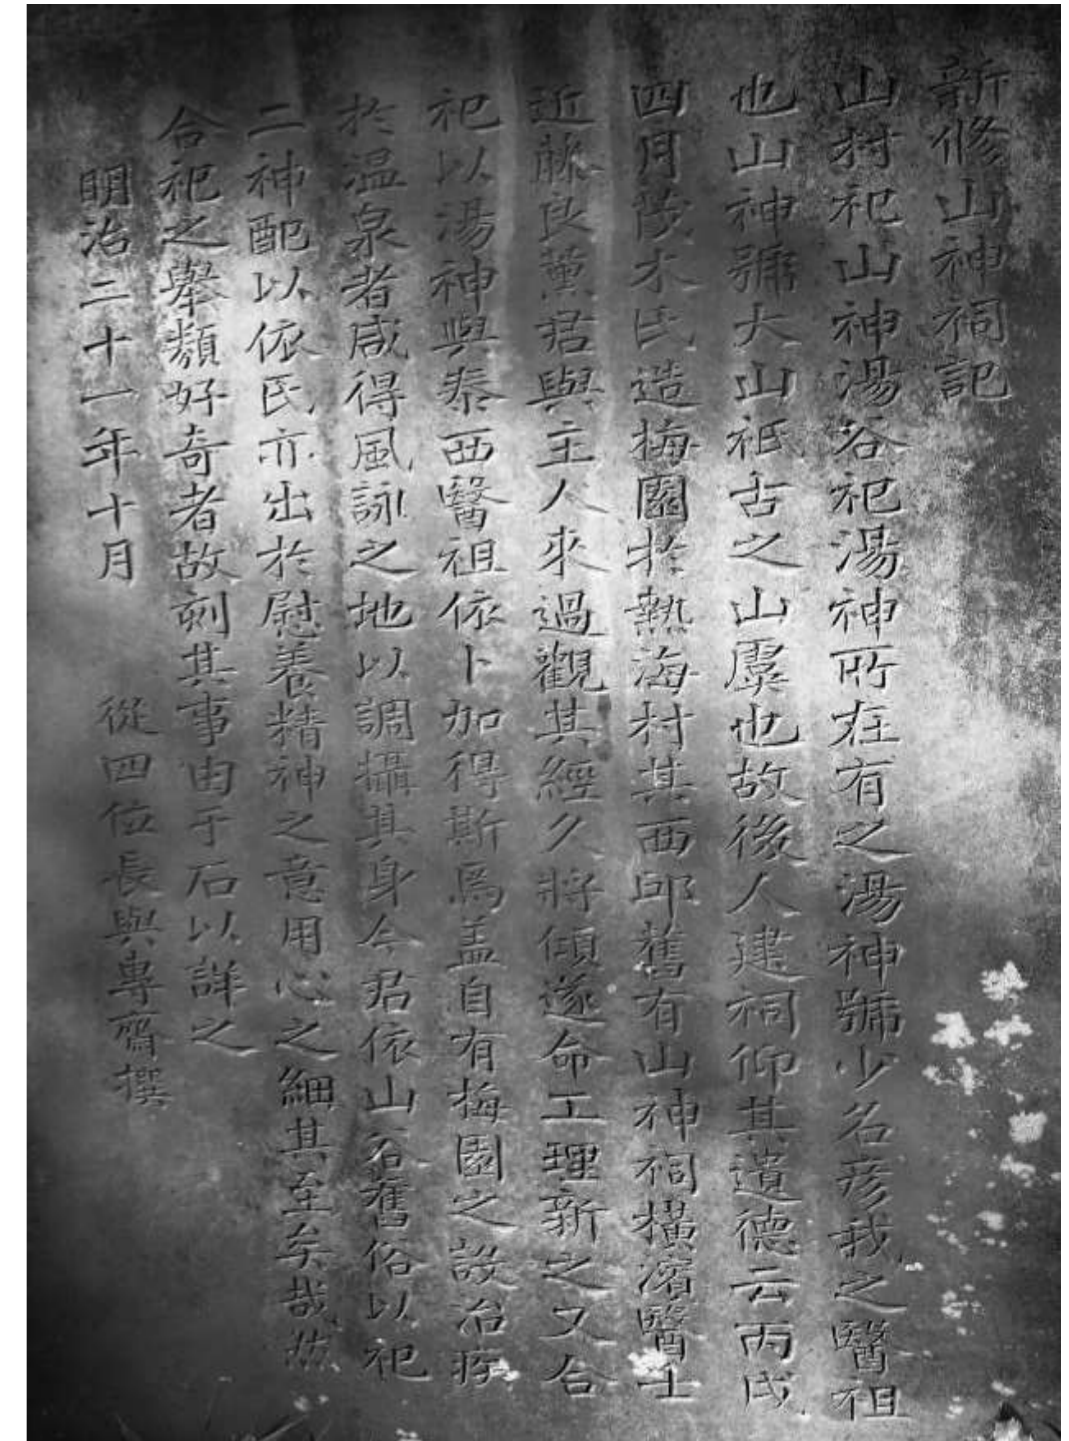 新修山神祠記
山村祀山神湯谷祀湯神所在有之湯神號少名彦我之醫祖
也山神號大山祇古之山虞也故後人建祠仰其遺德云丙戌
四月茂木氏造梅園於熱海村其西邱舊有山神祠横濱醫士
近藤良薰君與主人來過觀其經久將傾遂命工理新之又合
祀以湯神與泰西醫祖依卜加得斯焉盖自有梅園之設治疾
於温泉者咸得風詠之地以調攝其身今君依山名舊俗以祀
二神配以依氏亦出於慰養精神之意用心之細其至矣哉然
合祀之舉頗好奇者故刻其事由于石以詳之
明治二十一年十月　從四位長與專齋撰